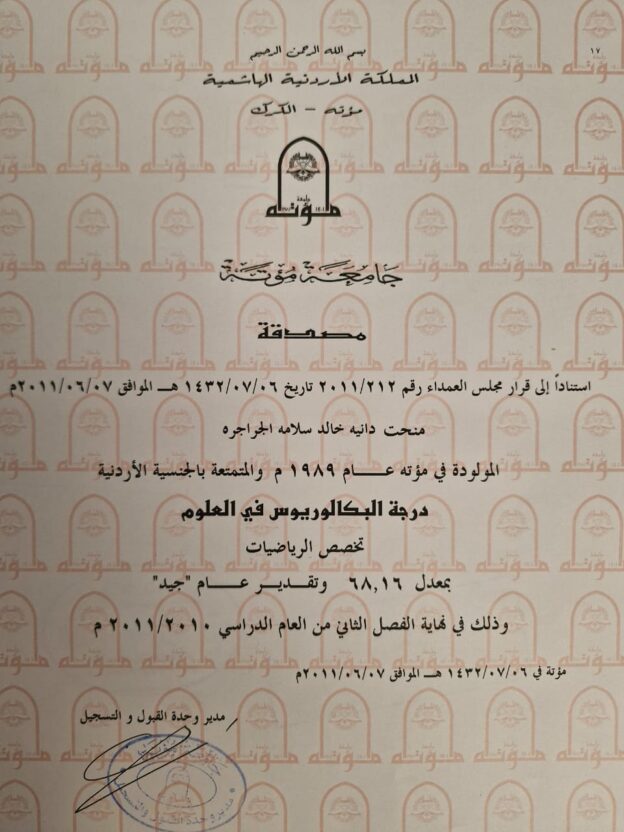 ١٧
بسم الله الرحمن الرحيم
المملكة الأردنية الهاشمية
مؤته – الكرك
جامعة
مؤته
جامعة مؤتة
مصدقة
استناداً إلى قرار مجلس العمداء رقم ٢٠١١/٢١٢ تاريخ ١٤٣٢/٠٧/٠٦ هـ الموافق ٢٠١١/٠٦/٠٧م
منحت دانيه خالد سلامه الجراجره
المولودة في مؤته عــــام ١٩٨٩ م والمتمتعة بالجنسية الأردنية
درجة البكالوريوس في العلوم
تخصص الرياضيات
بمعدل ٦٨,١٦ وتقــدير عــــام "جيد"
وذلك في نهاية الفصل الثاني من العام الدراسي ٢٠١١/٢٠١٠ م
مؤتة في ١٤٣٢/٠٧/٠٦ هـ الموافق ٢٠١١/٠٦/٠٧م
مدير وحدة القبول و التسجيل